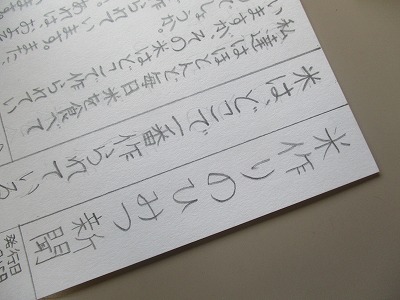 米作りのひみつ新聞
発行日
米は、どこで一番作られている
私達はほとんど毎日米を食べて
いますが、その米はどこで作られてい
でしょうか。
られています。また、